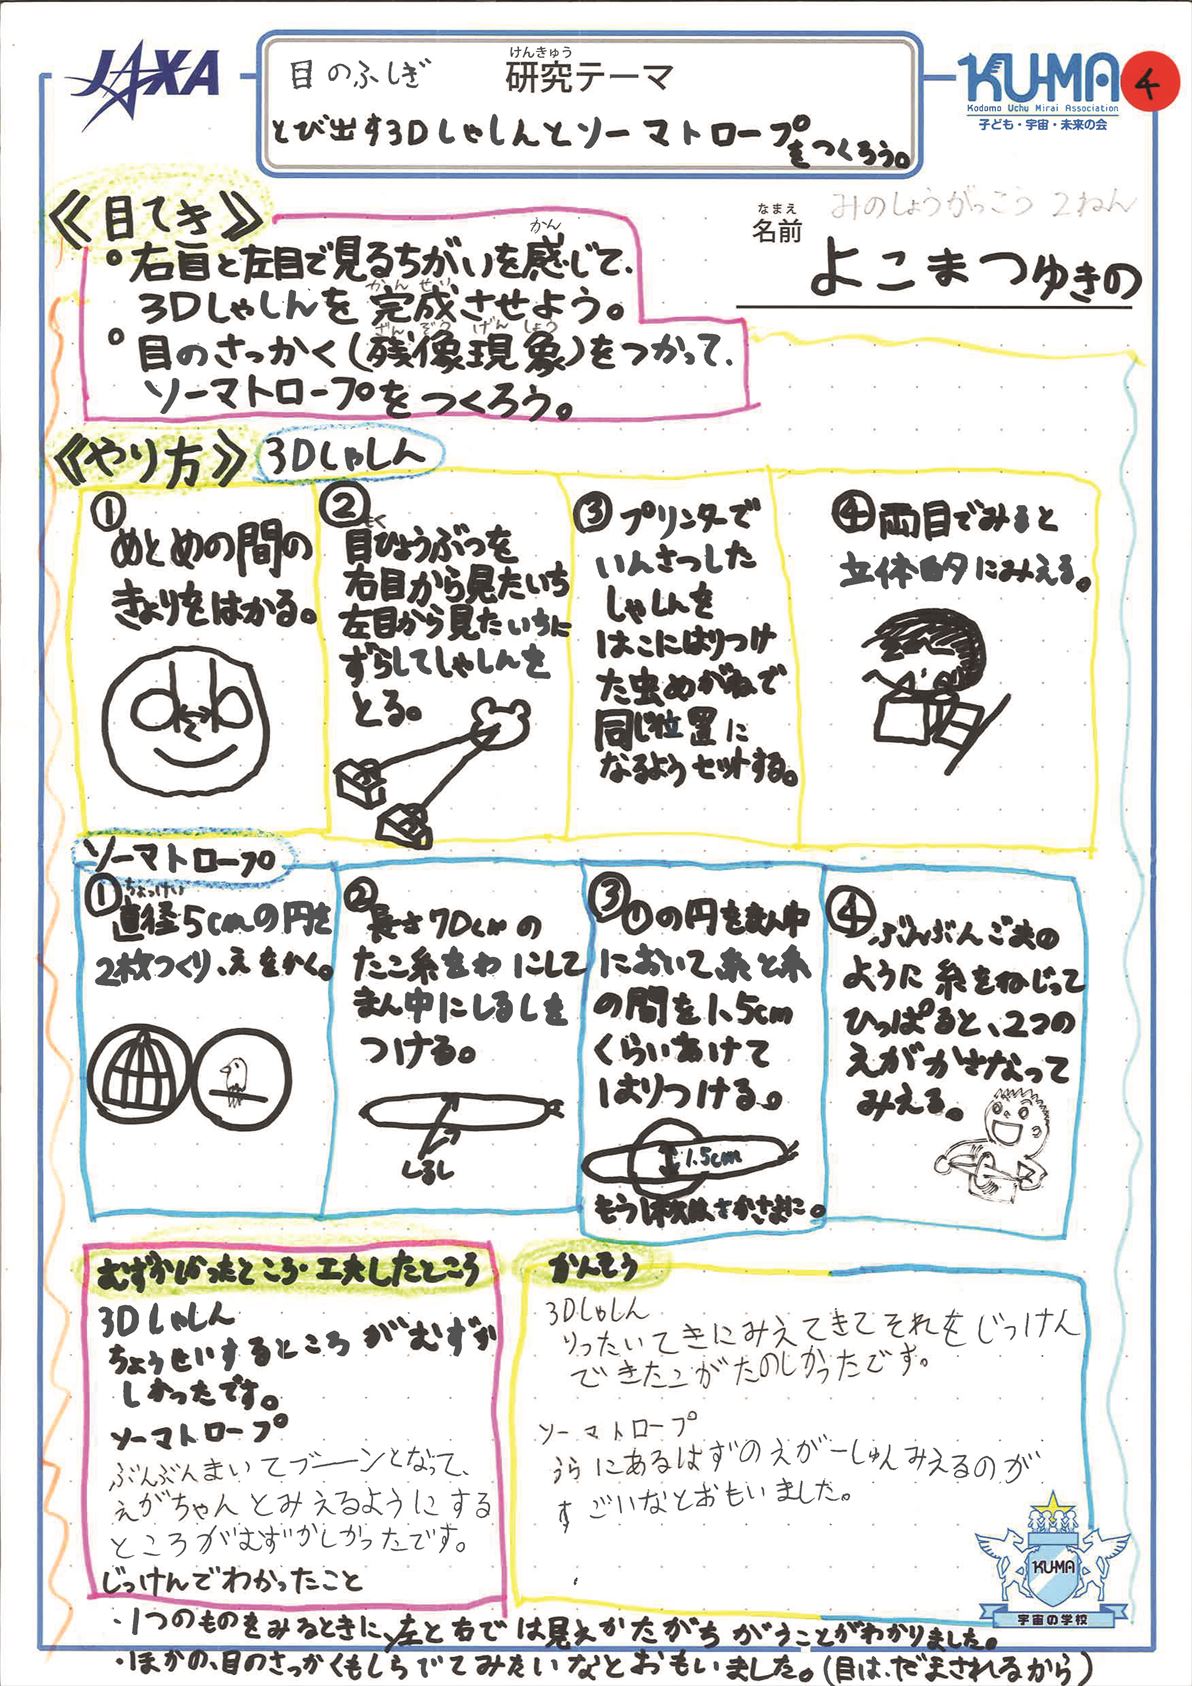 JAXA
目のふしぎ
けんきゅう
研究テーマ
とび出す3Dしゃしんとソーマトロープ
をつくろう。
KU-MA
Kodomo Uchu Mirai Association
子ども・宇宙・未来の会
4
《目てき》
なまえ
名前
みのしょうがっこう 2ねん
よこまつゆきの
かん
・右目と左目で見るちがいを感じて、
かんせい
3Dしゃしんを完成させよう。
ざんぞうげんしょう
・目のさっかく(残像現象)をつかって、
ソーマトロープをつくろう。
《やり方》 3Dしゃしん
①
めとめの間の
きょりをはかる。
②
もく
目ひょうぶつを
右目から見たいち
左目から見たいちに
ずらしてしゃしんを
とる。
③プリンターで
いんさつした
しゃしんを
はこにはりつけ
た虫めがねで
同じ位置に
なるようセットする。
④両目でみると
立体的にみえる。
ソーマトロープ
①
ちょっけい
直径5cmの円を
2枚つくり、えをかく。
②
長さ70cmの
たこ糸をわにして
まん中にしるしを
つける。
しるし
③①の円をまん中
において、糸と糸
の間を1.5cm
くらいあけて
はりつける。
1.5cm
もう1枚は、さかさまに。
④ぶんぶんごまの
ように糸をねじって
ひっぱると、2つの
えがかさなって
みえる。
むずかしかったところ・工夫したところ
3Dしゃしん
ちょうせいするところがむずか
しかったです。
ソーマトロープ
ぶんぶんまいてブーーンとなって、
えがちゃんとみえるようにする
ところがむずかしかったです。
かんそう
3Dしゃしん
りったいてきにみえてきてそれをじっけん
できたこがたのしかったです。
ソーマトロープ
うらにあるはずのえがーしゅんみえるのが
すごいなとおもいました。
じっけんでわかったこと
・1つのものをみるときに、左と右では見えかたがちがうことがわかりました。
・ほかの、目のさっかくもしらでてみたいなとおもいました。(目は、だまされるから)
KU-MA
宇宙の学校